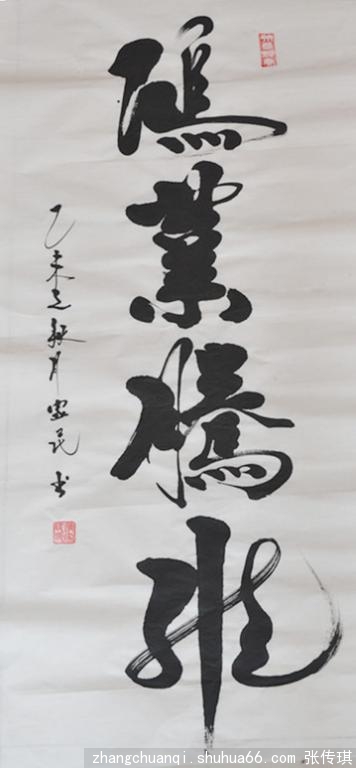 鴻業騰飛
乙未之秋月書
zhangchuanqi.shuhua66.com 张传琪